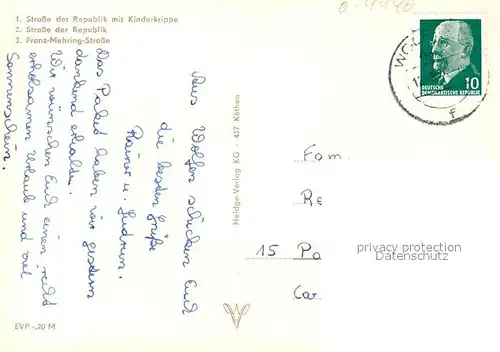 1. Straße der Republik mit Kinderkrippe
2. Straße der Republik
3. Franz-Mehring-Straße
Aus Wolfen schicken Euch
die besten Grüße
Rainer u. Gudrun.
Das Paket haben wir gestern
dankend erhalten.
Wir wünschen Euch einen recht
erholsamen Urlaub und viel
Sonnenschein.
EVP -,20 M
Heldge-Verlag KG · 437 Köthen
DEUTSCHE
DEMOKRATISCHE REPUBLIK
10
f
Fam
Re
15 Po
Car
privacy protection
Datenschutz